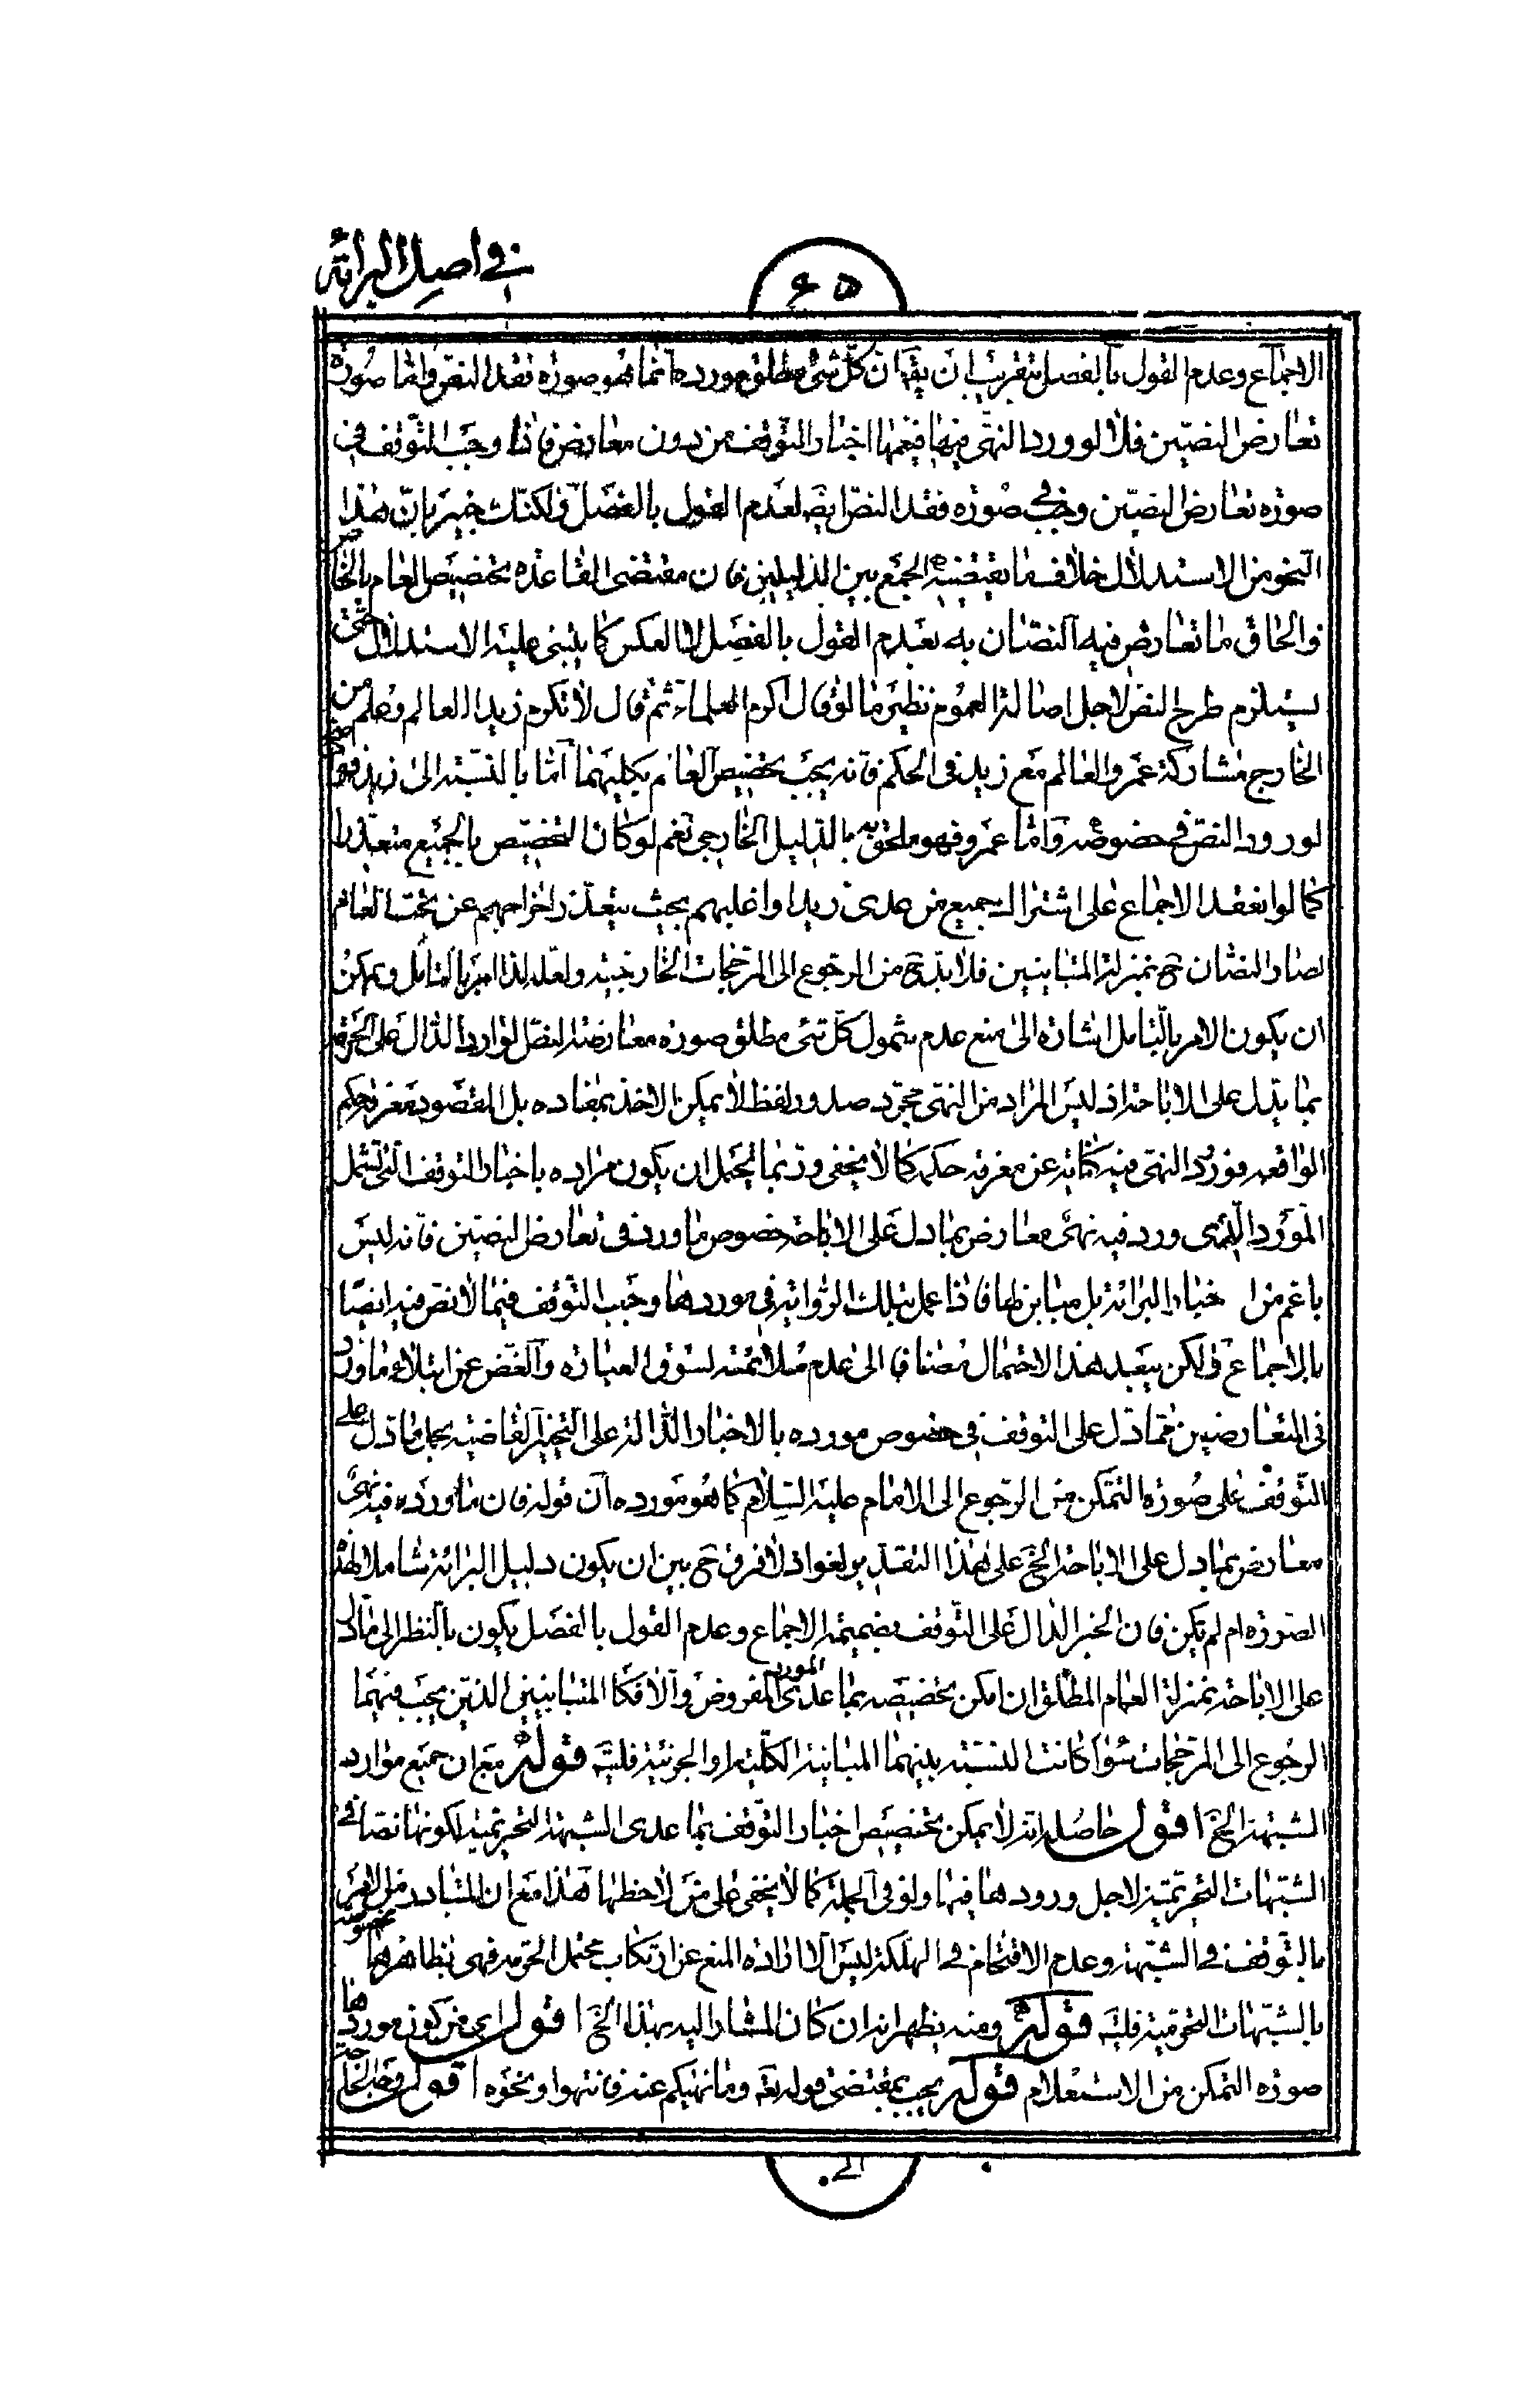 في اصل البرائة
٤٥
الاجماع وعدم القول بالفصل بتقريب ان يقه ان كل شئ مطلق مورده انما هو صورة فقد النص واما صورة
تعارض النصين فلا لورود النهى فيها فيعمها اخبار التوقف من دون معارض فاذا وجب التوقف في
صورة تعارض النصين وجب في صورة فقد النص ايضا لعدم القول بالفصل ولكنك خبير بان هذا
النحو من الاستدلال خلاف ما يقتضيه الجمع بين الدليلين فان مقتضى القاعدة تخصيص العام بالخاص
والحاق ما تعارض فيه النصان به بعدم القول بالفصل لا بالعكس كما يبتنى عليه الاستدلال حتى
يستلزم طرح النص لاجل اصالة العموم نظير ما لو قال اكرم العلماء ثم قال لا تكرم زيدا العالم وعلم من
الخارج مشاركة عمرو العالم مع زيد في الحكم فانه يجب تخصيص العام بكليهما اما بالنسبة الى زيد فواضح
لورود النص في خصوصه واما عمرو فهو ملحق به بالدليل الخارجى نعم لو كان التخصيص بالجميع متعذرا
كما لو انعقد الاجماع على اشتراك جميع من عدى زيدا واغلبهم بحيث يتعذر اخراجهم عن تحت العام
لصار النصان ح بمنزلة المتباينين فلا بد ح من الرجوع الى المرجحات الخارجية ولعله لذا امر بالتامل ويمكن
ان يكون الامر بالتامل اشارة الى منع عدم شمول كل شئ مطلق صورة معارضة النص الوارد الدال على الحرمة
بما يدل على الاباحة اذ ليس المراد من النهى مجرد صدور لفظ لا يمكن الاخذ بمفاده بل المقصود معرفة حكم
الواقعه فورود النهى فيه كناية عن معرفة حكمه كما لا يخفى وربما يحتمل ان يكون مراده باخبار التوقف التي تشمل
المورد الذى ورد فيه نهى معارض بما دل على الاباحة خصوص ما ورد في تعارض النصين فانه ليس
باعم من اخبار البرائة بل مباين لها فاذا عمل بتلك الرواية في موردها وجب التوقف فيما لا نص فيه ايضا
بالاجماع ولكن يبعد هذا الاحتمال مضافا الى عدم ملائمته لسوق العبارة والغض عن ابتلاء ما ورد
في المتعارضين مما دل على التوقف في خصوص مورده بالاخبار الدالة على التخيير القاضية بحمل ما دل على
التوقف على صورة التمكن من الرجوع الى الامام عليه السلام كما هو مورده ان قوله فان ما ورد فيه نهى
معارض بما دل على الاباحة الخ على هذا التقدير لغو اذ لا فرق ح بين ان يكون دليل البرائة شاملا لهذه
الصورة ام لم يكن فان الخبر الدال على التوقف بضميمة الاجماع وعدم القول بالفصل يكون بالنظر الى ما دل
على الاباحة بمنزلة العام المطلق ان امكن تخصيصه بما عدى المورد المفروض والا فكالمتباينين الذين يجب فيهما
الرجوع الى المرجحات سواء كانت النسبة بينهما المباينة الكلية او الجزئية فليته قوله مع ان جميع موارد
الشبهة الخ اقول حاصله انه لا يمكن تخصيص اخبار التوقف بما عدى الشبهة التحريمية لكونها نصا في
الشبهات التحريمية لاجل ورودها فيها ولو في الجملة كما لا يخفى على من لاحظها هذا مع ان المتبادر من الامر
بالتوقف في الشبهة وعدم الاقتحام في الهلكة ليس الا ارادة المنع عن ارتكاب محتمل الحرمة فهى بظاهرها مخصوصة
بالشبهات التحريمية فليته قوله ومنه يظهر انه ان كان المشار اليه بهذا الخ اقول اى من كون موردها
صورة التمكن من الاستعلام قوله يجب بمقتضى قوله تعه وما نهيكم عنه فانتهوا ونحوه اقول وجه الحاجة
الى